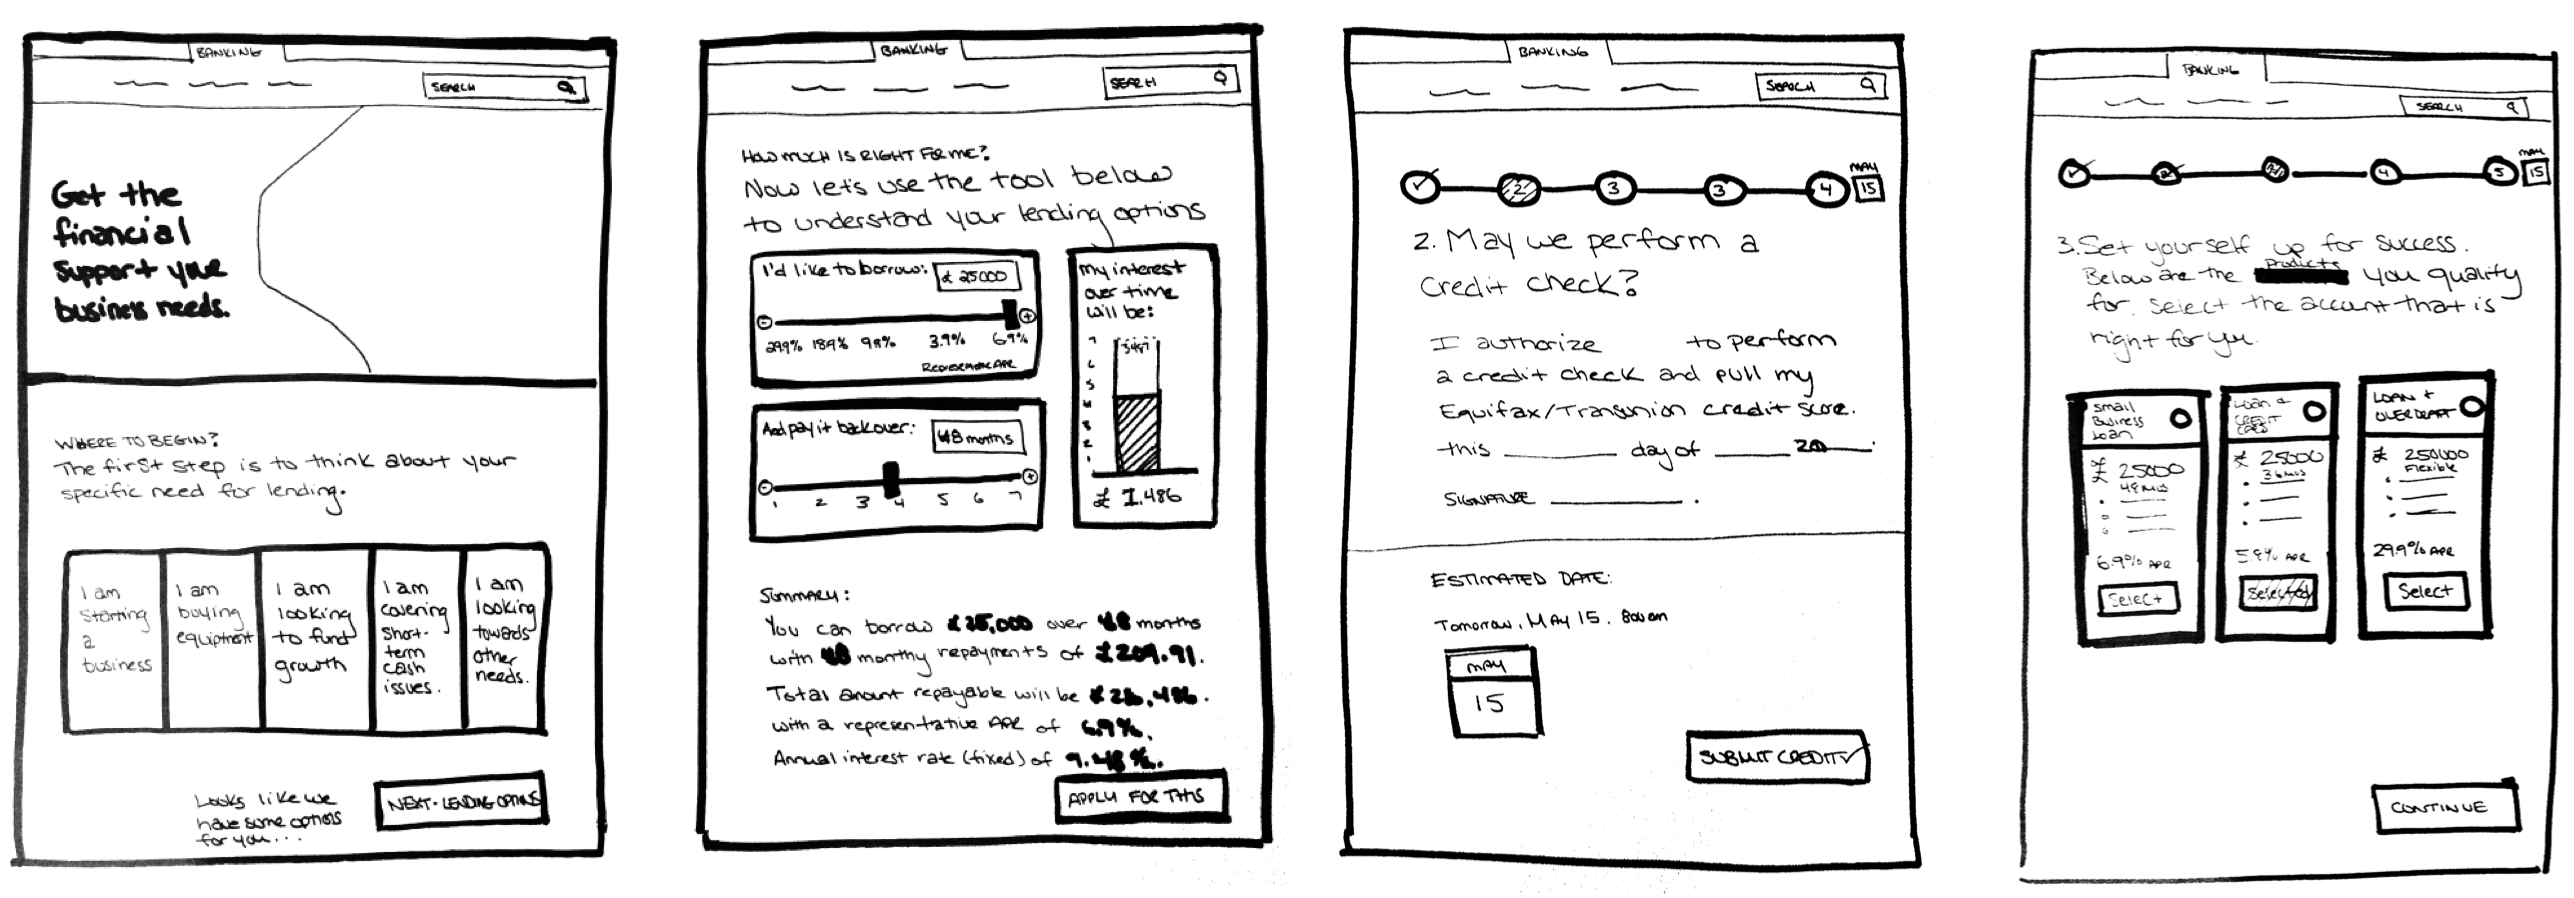 BANKING
SEARCH
Get the
financial
support your
business needs.
WHERE TO BEGIN?
The first step is to think about your
specific need for lending.
I am
starting
a
business
I am
buying
equiptment
I am
looking
to fund
growth
I am
covering
short-
term
cash
issues.
I am
looking
towards
other
needs.
Looks like we
have some options
for you...
NEXT - LENDING OPTIONS
BANKING
SEARCH
HOW MUCH IS RIGHT FOR ME?
Now let's use the tool below
to understand your lending options
I'd like to borrow: £ 25000
- +
29.9% 18.9% 9.9% 3.9% 6.9%
Representative APR
And pay it back over: 48 months
- +
1 2 3 4 5 6 7
My interest
over time
will be:
7
6
5
4
3
2
1
£ 1.486
SUMMARY:
You can borrow £25,000 over 48 months
with 48 monthly repayments of £209.91.
Total amount repayable will be £26,486.
with a representative APR of 6.9%.
Annual interest rate (fixed) of 9.48%.
APPLY FOR THIS
BANKING
SEARCH
MAY
2 3 3 4 15
2. May we perform a
credit check?
I authorize to perform
a credit check and pull my
Equifax/Transunion credit score.
this day of 20
SIGNATURE .
ESTIMATED DATE:
Tomorrow, MAY 15. 8am
MAY
15
SUBMIT CREDIT
BANKING
SEARCH
MAY
2 4 5 15
3. Set yourself up for success.
Below are the Products you qualify
for. Select the account that is
right for you.
Small
Business
Loan
£ 25000
48 MOS
6.9% APR
Select
Loan &
CREDIT
CARD
£ 25000
36 MOS
5.9% APR
Selected
LOAN +
OVERDRAFT
£ 250000
Flexible
29.9% APR
Select
CONTINUE